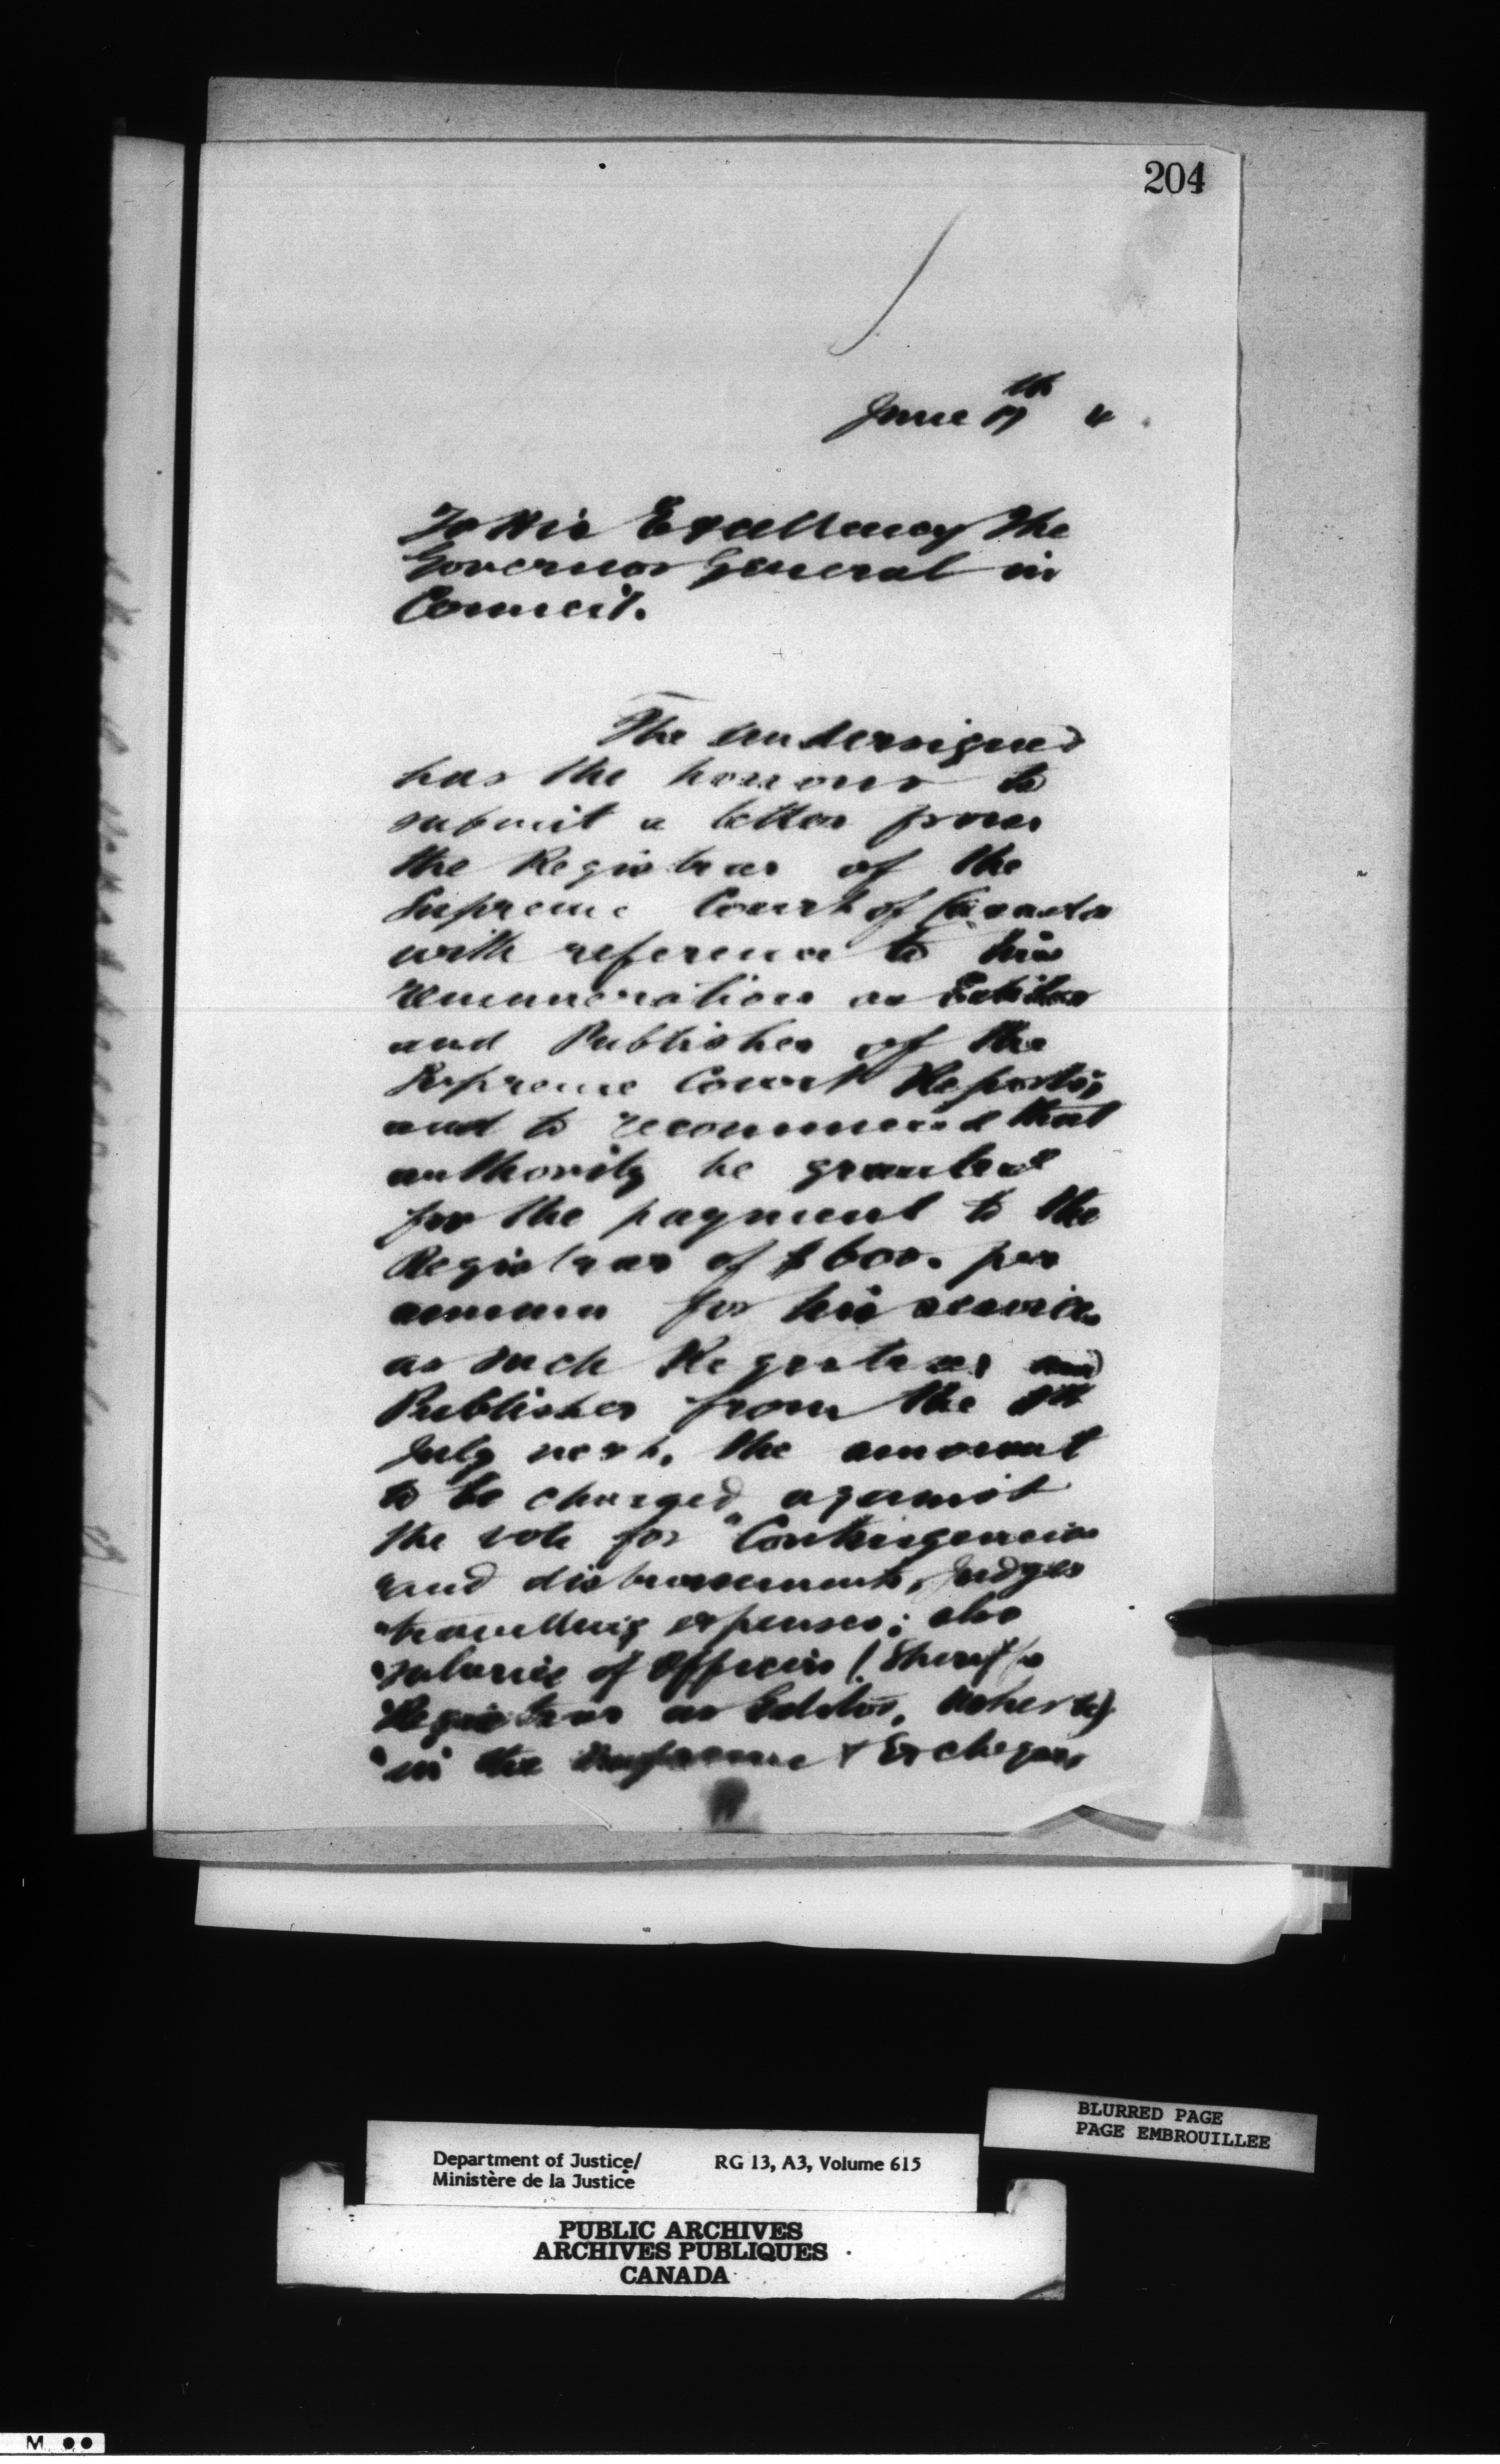 204
June 17th 4
To His Excellency The
Governor General in
Council.
The undersigned
has the honour to
submit a letter from
the Registrar of the
Supreme Court of Canada
with reference to his
remuneration as Editor
and Publisher of the
Supreme Court Reports,
and to recommend that
authority be granted
for the payment to the
Registrar of $600. per
annum for his services
as such Registrar and
Publisher from the 1st
July next, the amount
to be charged against
the vote for "Contingencies
"and disbursements, Judges
"travelling expenses; also
"salaries of Officers (Sheriffs
"Registrar as Editor, Ushers &)
"in the Supreme & Exchequer
BLURRED PAGE
PAGE EMBROUILLEE
Department of Justice/ RG 13, A3, Volume 615
Ministère de la Justice
PUBLIC ARCHIVES
ARCHIVES PUBLIQUES
CANADA
M